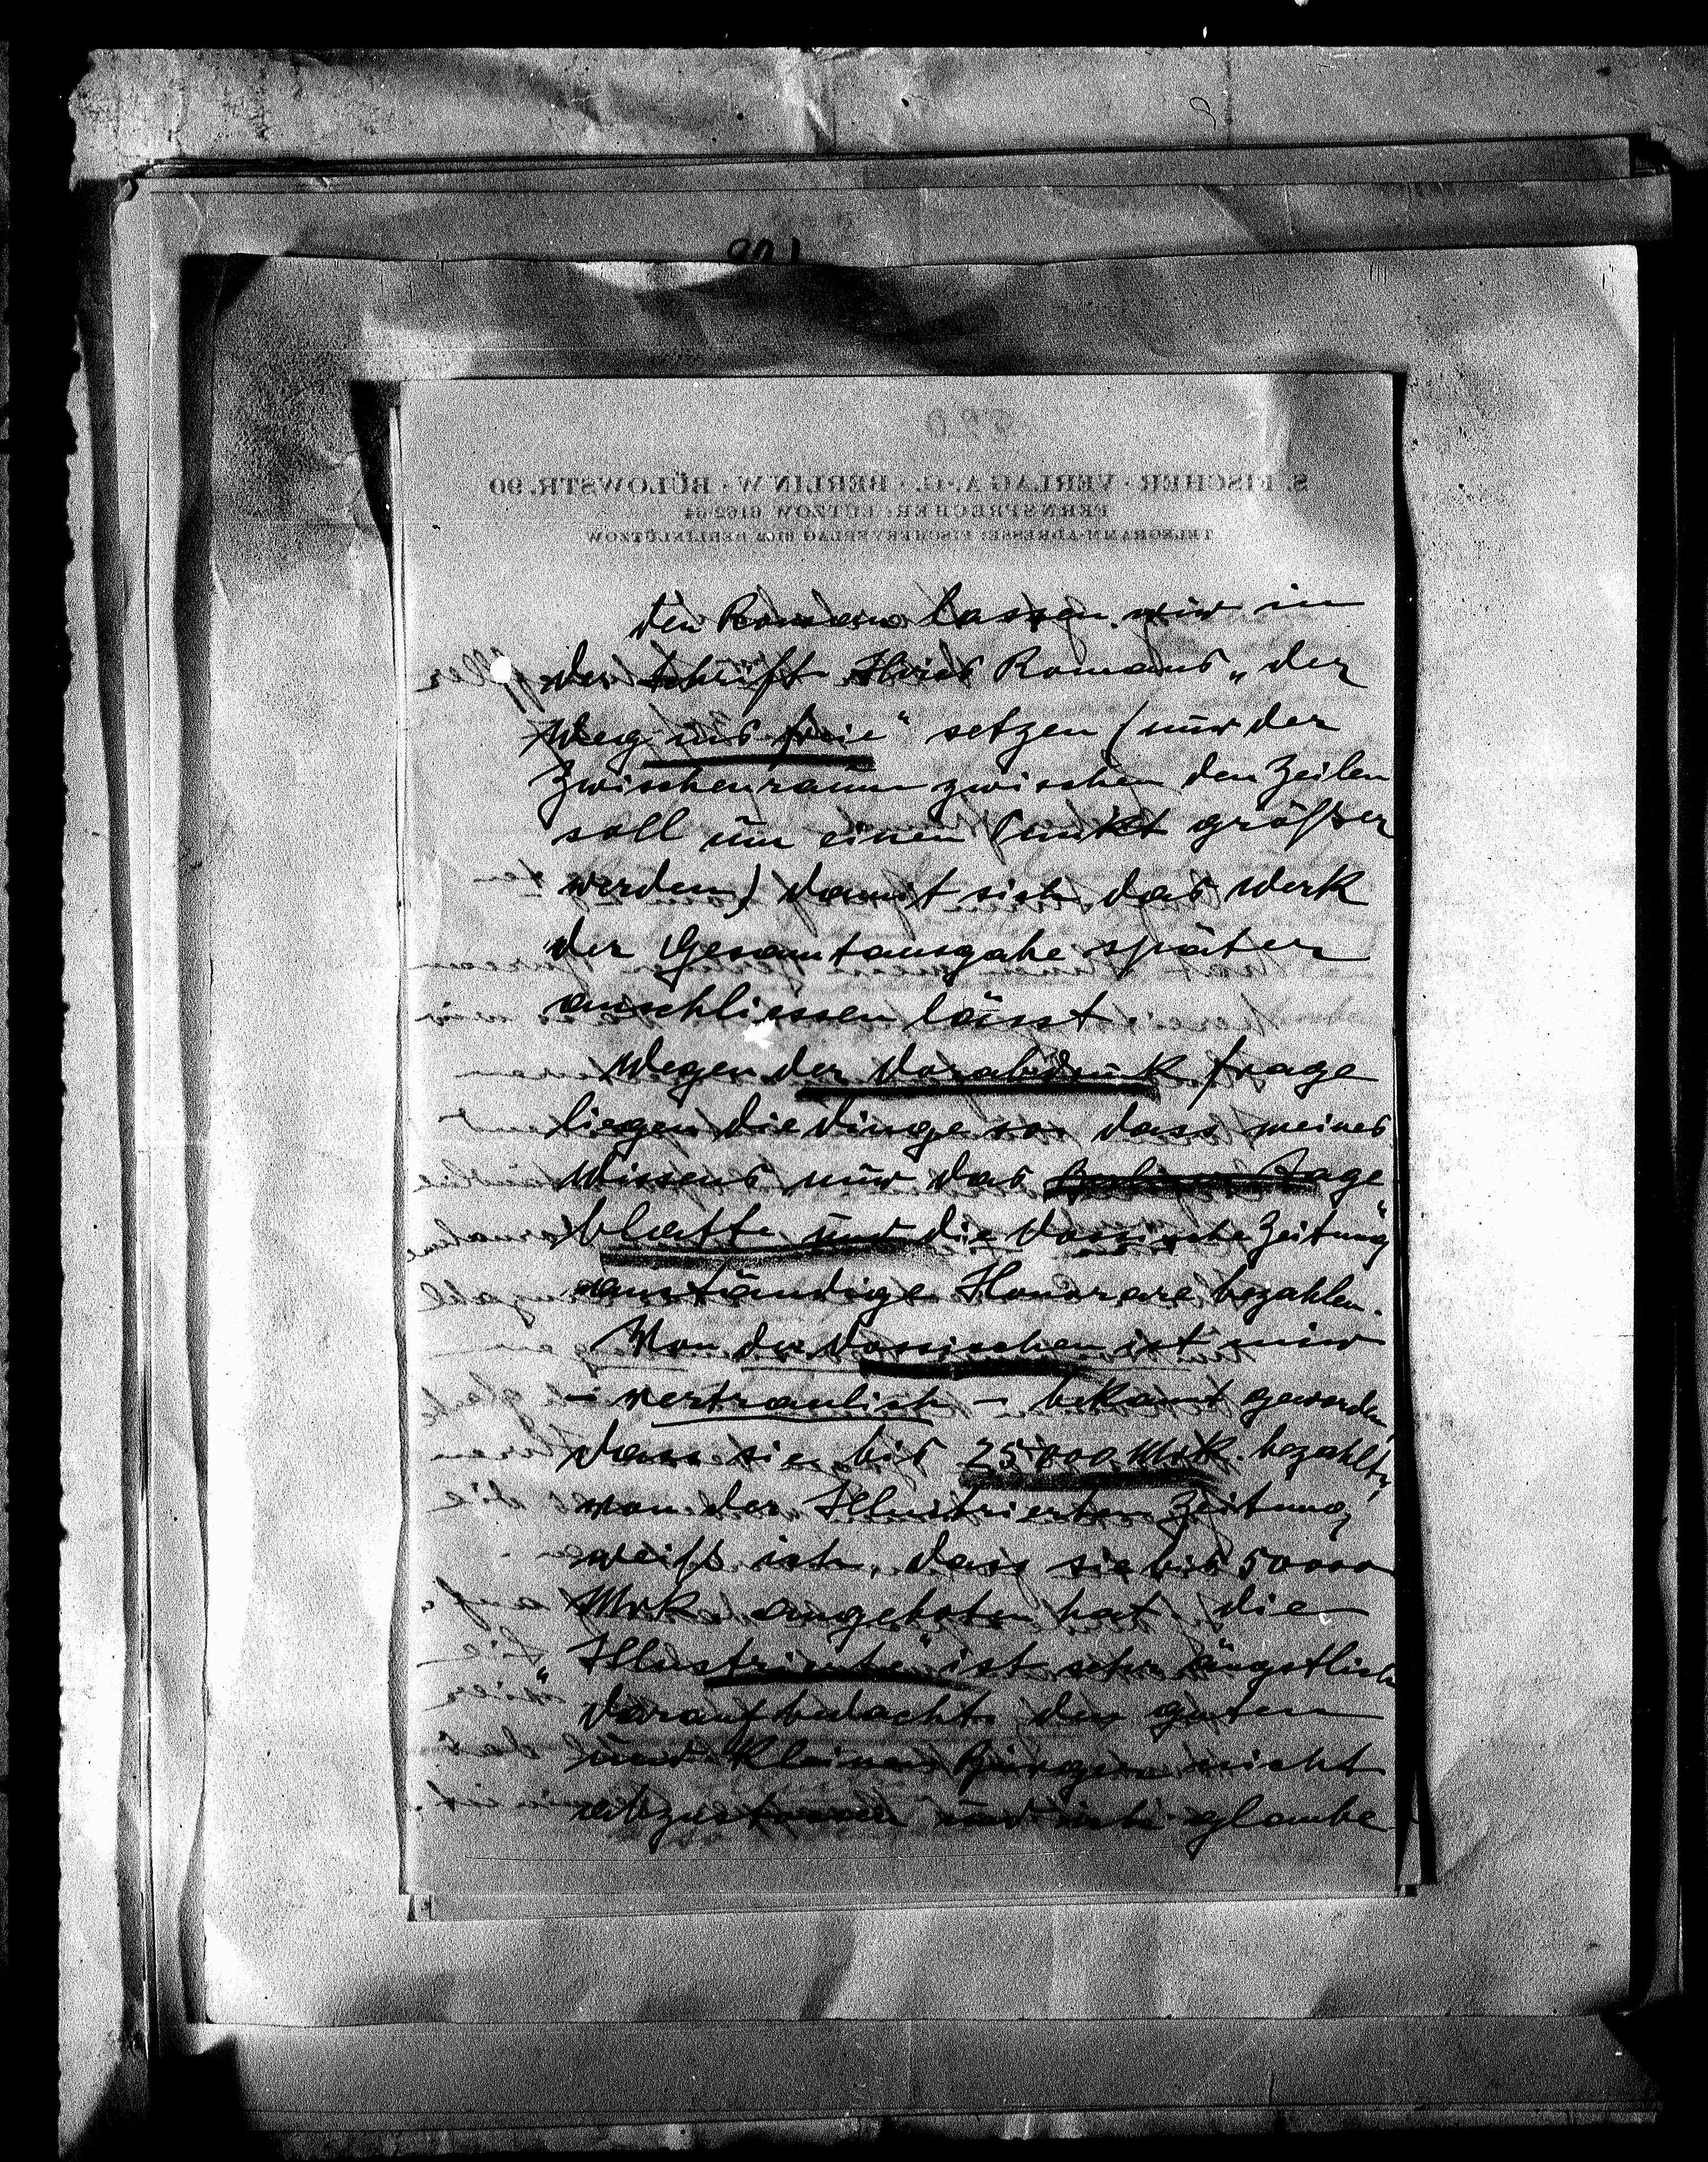 den Roman lassen wir in
der Schrift Ihres Romans „der
Weg ins freie“ setzen (nur der
Zwischenraum zwischen den Zeilen
soll um einen Punkt größer
werden) damit sich das Werk
der Gesamtausgabe später
anschliessen lässt.
Wegen der Vorabdruck frage
liegen die Dinge so, dass meines
Wissens nur das Berliner Tage
blatt und die Vossische Zeitung
anständige Honorare bezahlen.
Von der Vossischen ist mir
– vertraulich – bekannt geworden,
dass sie bis 25000 Mrk. bezahlt,
von der Illustrierten Zeitung
weiß ich, dass sie bis 50000
Mrk. angeboten hat. die
„Illustrierte“ ist sehr ängstlich
darauf bedacht, den guten
und kleinen Bürger nicht
und ich glaube